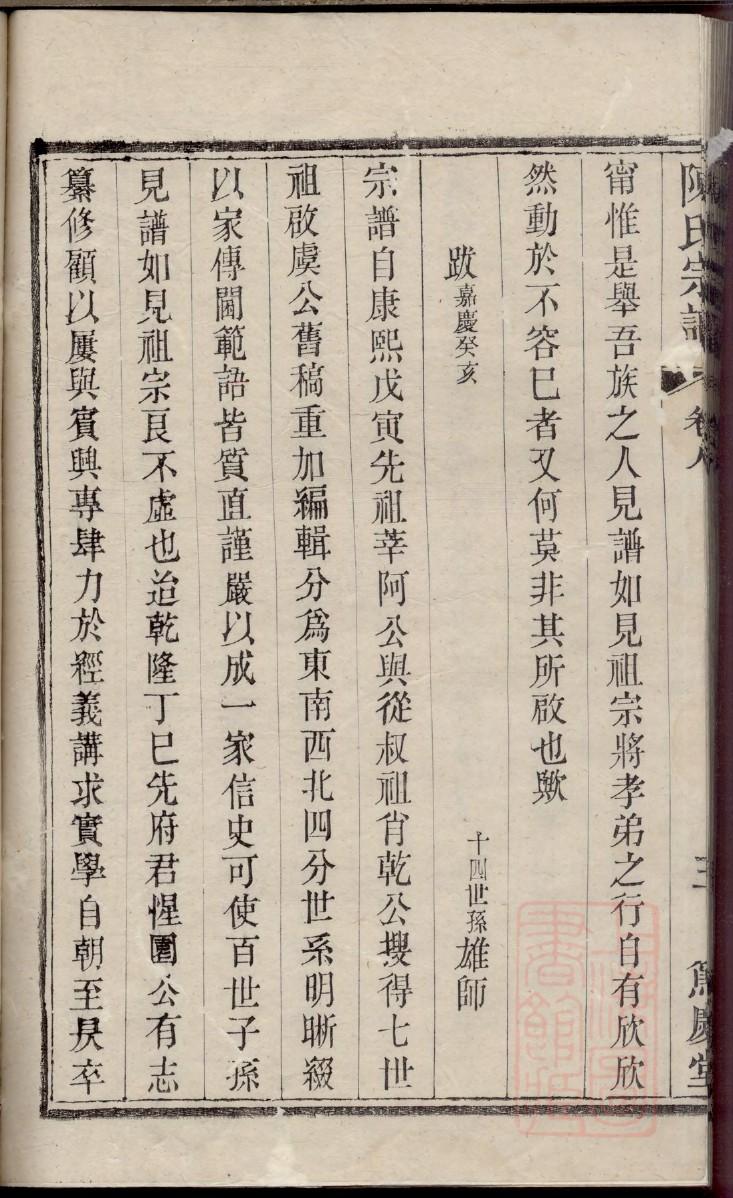 陳氏宗譜 卷八 三 篤慶堂
甯惟是舉吾族之人見譜如見祖宗將孝弟之行自有欣欣
然動於不容已者又何莫非其所啟也歟
跋嘉慶癸亥 十四世孫雄師
宗譜自康熙戊寅先祖莘阿公與從叔祖肖乾公搜得七世
祖啟虞公舊稿重加編輯分爲東南西北四分世系明晰綴
以家傳閫範語皆質直謹嚴以成一家信史可使百世子孫
見譜如見祖宗良不虛也迨乾隆丁巳先府君惺園公有志
纂修顧以屢與賓興專肆力於經義講求實學自朝至昃卒